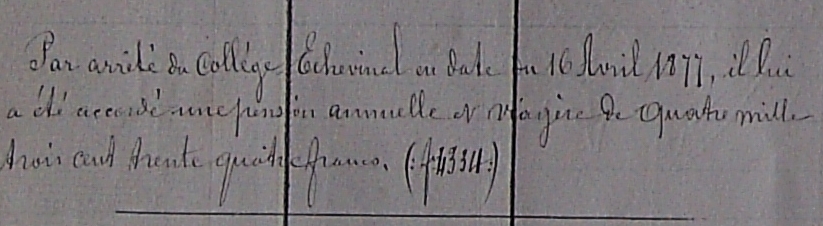 Par arrêté du Collége Echevinal en date du 16 Avril 1877, il lui
a été accordé une pension annuelle et viagère de quatre mille
trois cent trente quatre francs. (:f.4334:)